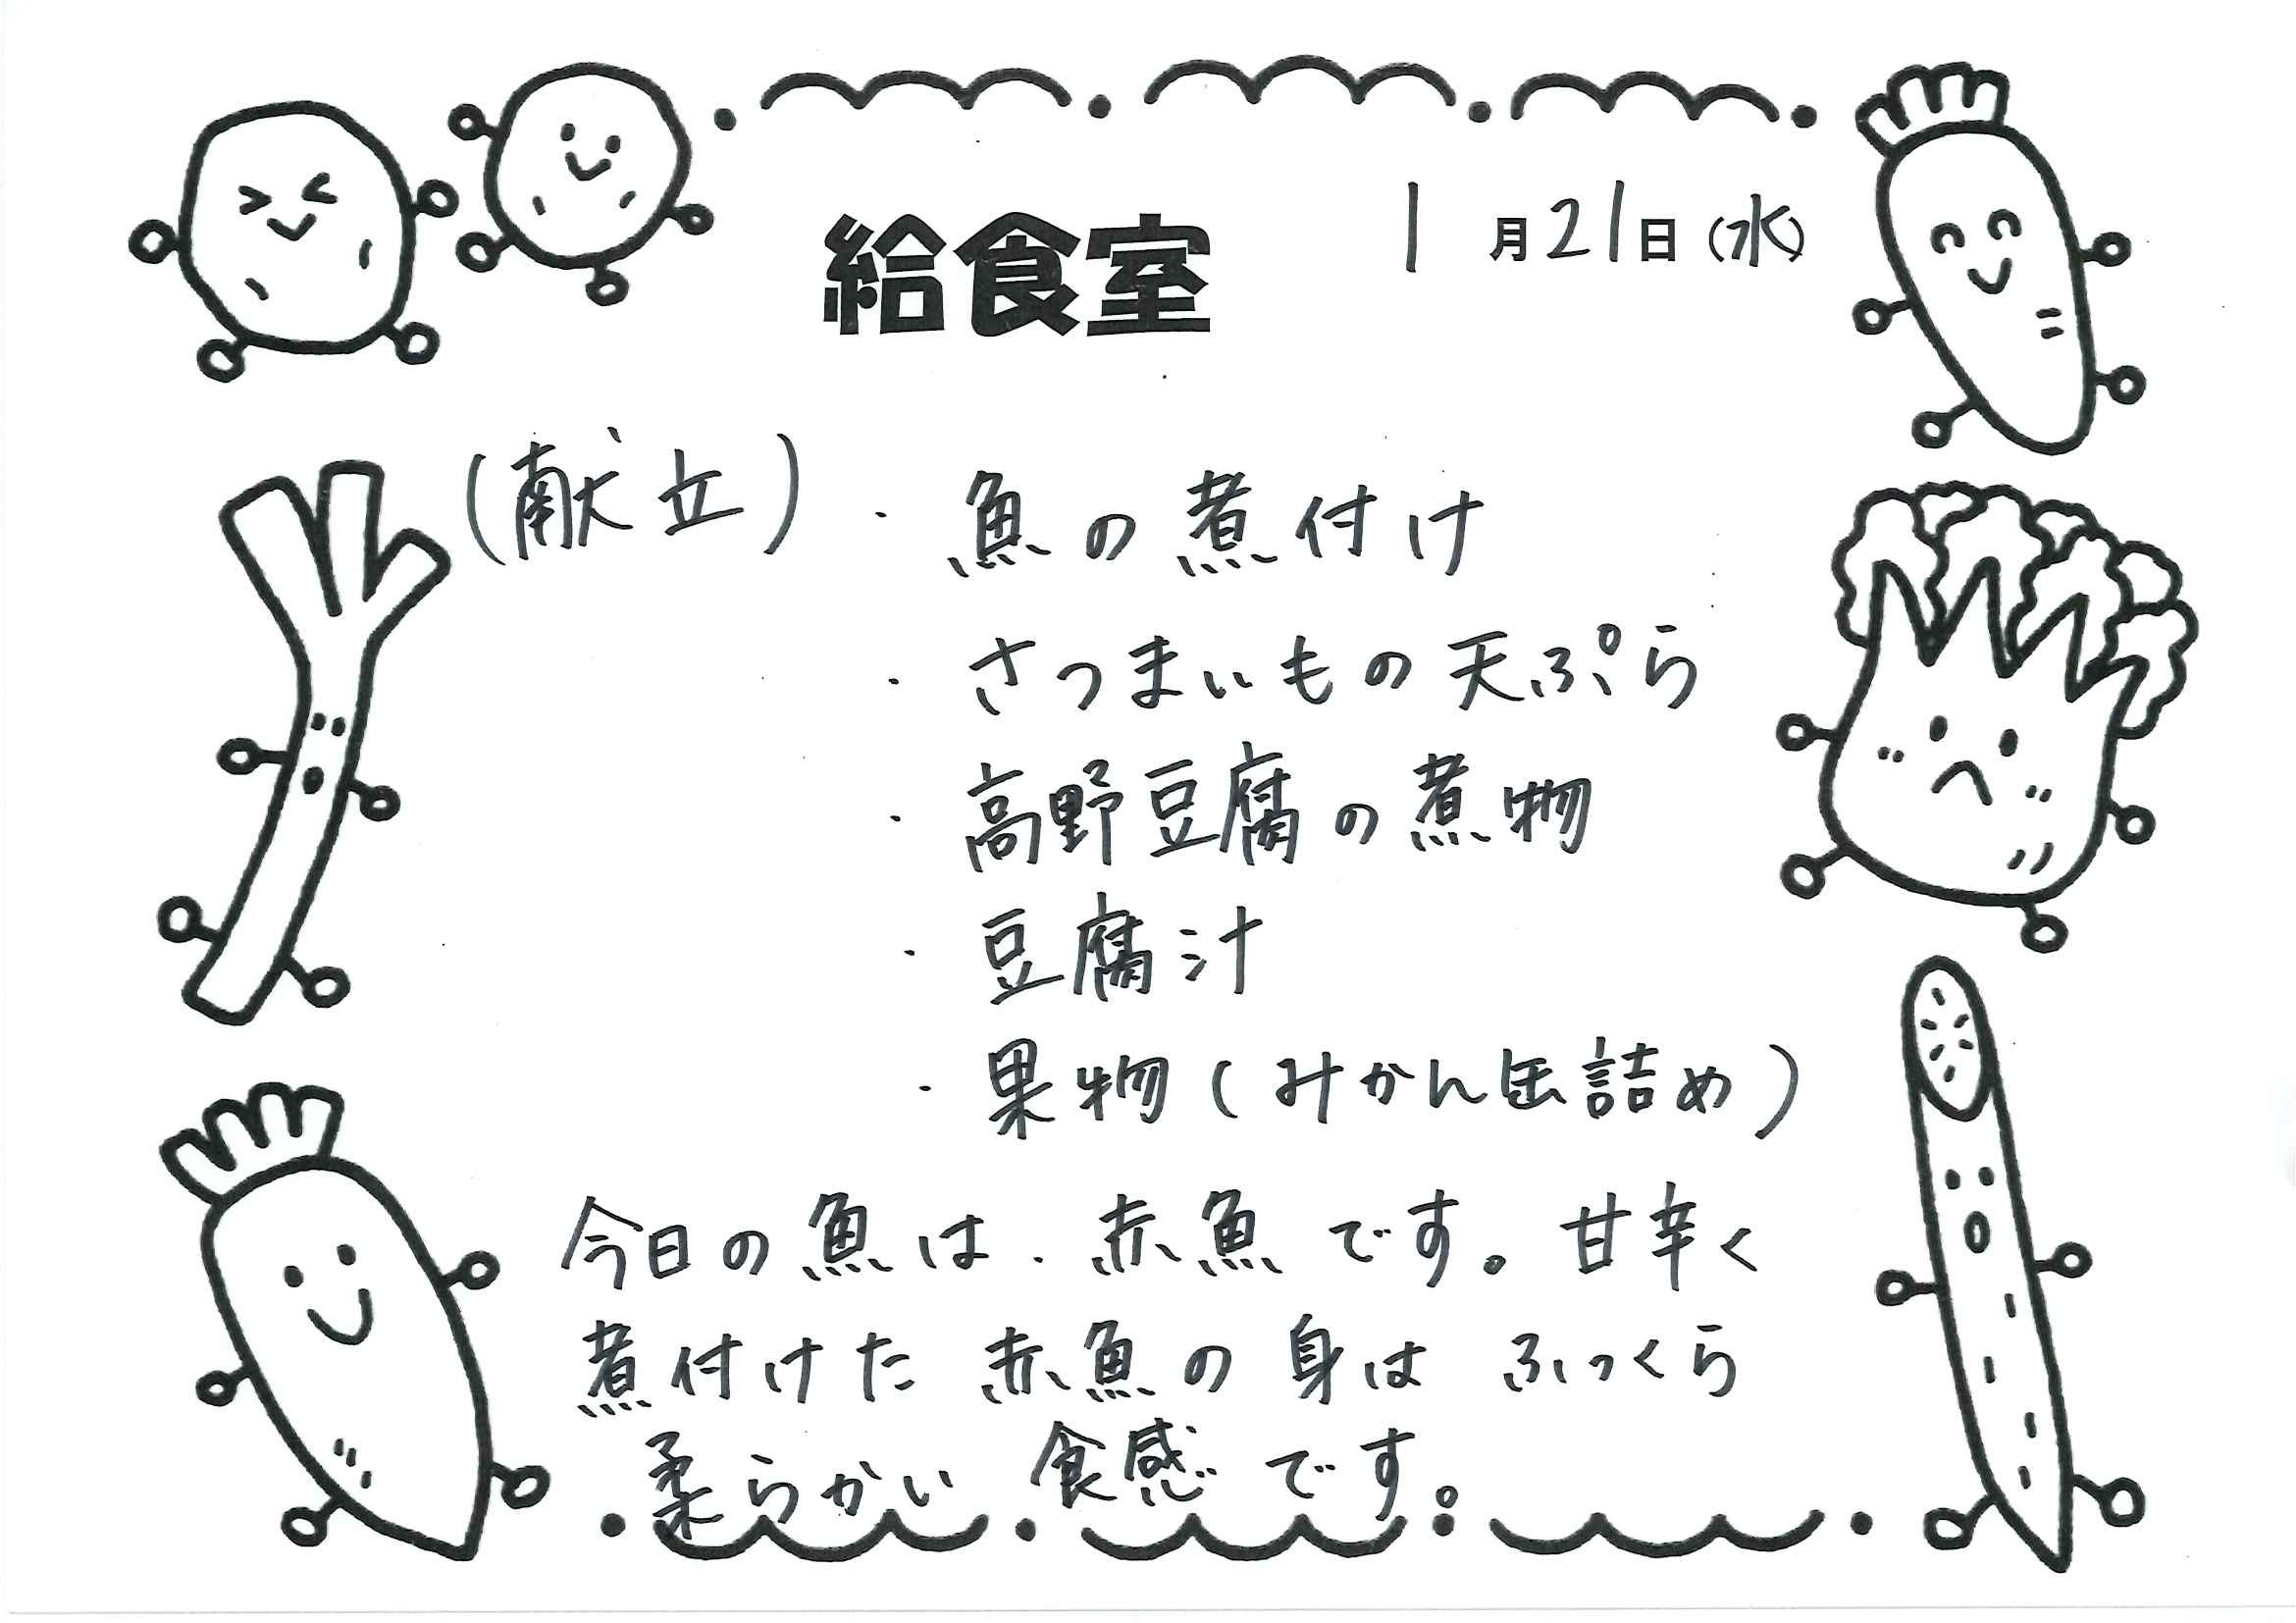 給食室
1月21日(水)
(献立)・魚の煮付け
・さつまいもの天ぷら
・高野豆腐の煮物
・豆腐汁
・果物(みかん缶詰め)
今日の魚は、赤魚です。甘辛く
煮付けた赤魚の身はふっくら
柔らかい食感です。